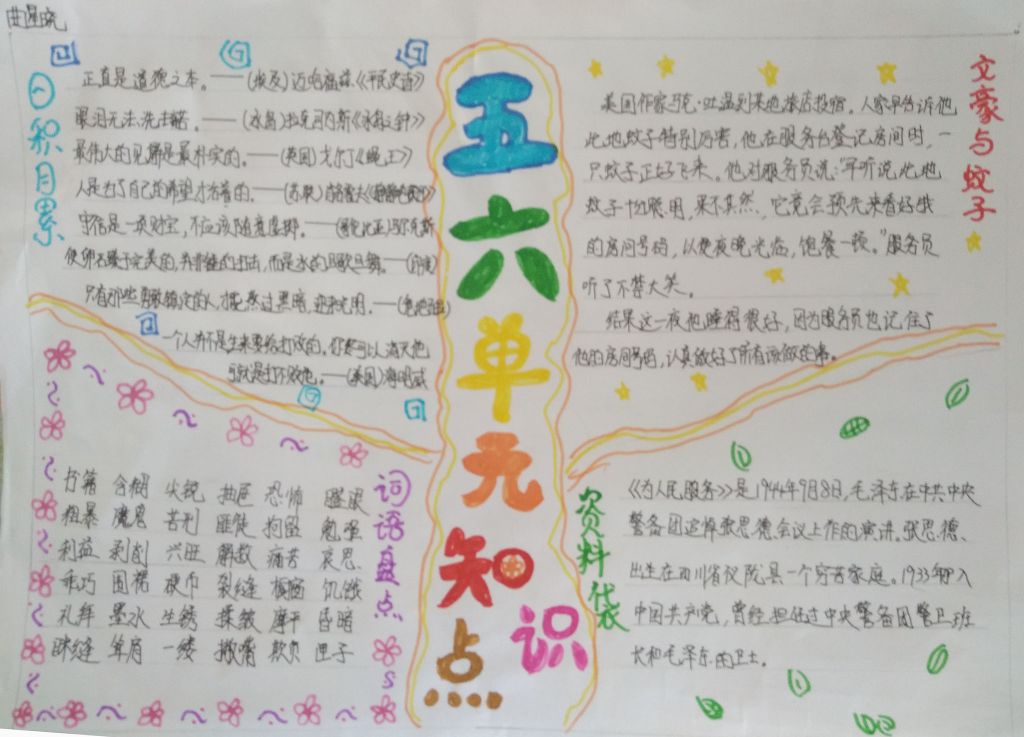 五六单元知识点
积月累
正直是道德之本。——(埃及)迈哈福兹《平民史诗》
眼泪无法洗去痛苦。——
最伟大的见解是最朴实的。——(英国)戈尔丁《蝇王》
人是为了自己的希望才活着的。——(苏联)
守信是一项财宝,不应该随意虚掷。——(哥伦比亚)马尔克斯
使卵石臻于完美的,并非锤的打击,而是水的且歌且舞。——(印度)
只有那些勇敢镇定的人,才能熬过黑暗,迎来光明。——
一个人并不是生来要给打败的,你尽可以消灭他
可就是打不败他。——(美国)海明威
文豪与蚊子
美国作家马克·吐温到某地旅店投宿。人家早告诉他
此地蚊子特别厉害,他在服务台登记房间时,一
只蚊子正好飞来。他对服务员说:“早听说此地
蚊子十分聪明,果不其然,它竟会预先来看好我
的房间号码,以便夜晚光临,饱餐一顿。”服务员
听了不禁大笑。
结果这一夜他睡得很好,因为服务员也记住了
他的房间号码,认真做好了所有该做的事。
词语盘点
书籍 含糊 尖锐 抽屉 恐怖
粗暴 魔鬼 苦刑 匪徒 拘留 勉强
利益 剥削 兴旺 解救 痛苦 哀思
乖巧 围裙 硬币 裂缝 橱窗 饥饿
礼拜 墨水 生锈 揉皱 摩平 昏暗
眯缝 耸肩 一缕 撇嘴 欺负 匣子
资料代表
《为人民服务》是1944年9月8日,毛泽东在中共中央
警备团追悼张思德会议上作的演讲。张思德、
出生在四川省仪陇县一个穷苦家庭。1933年加入
中国共产党,曾经担任过中央警备团警卫班
长和毛泽东的卫士。